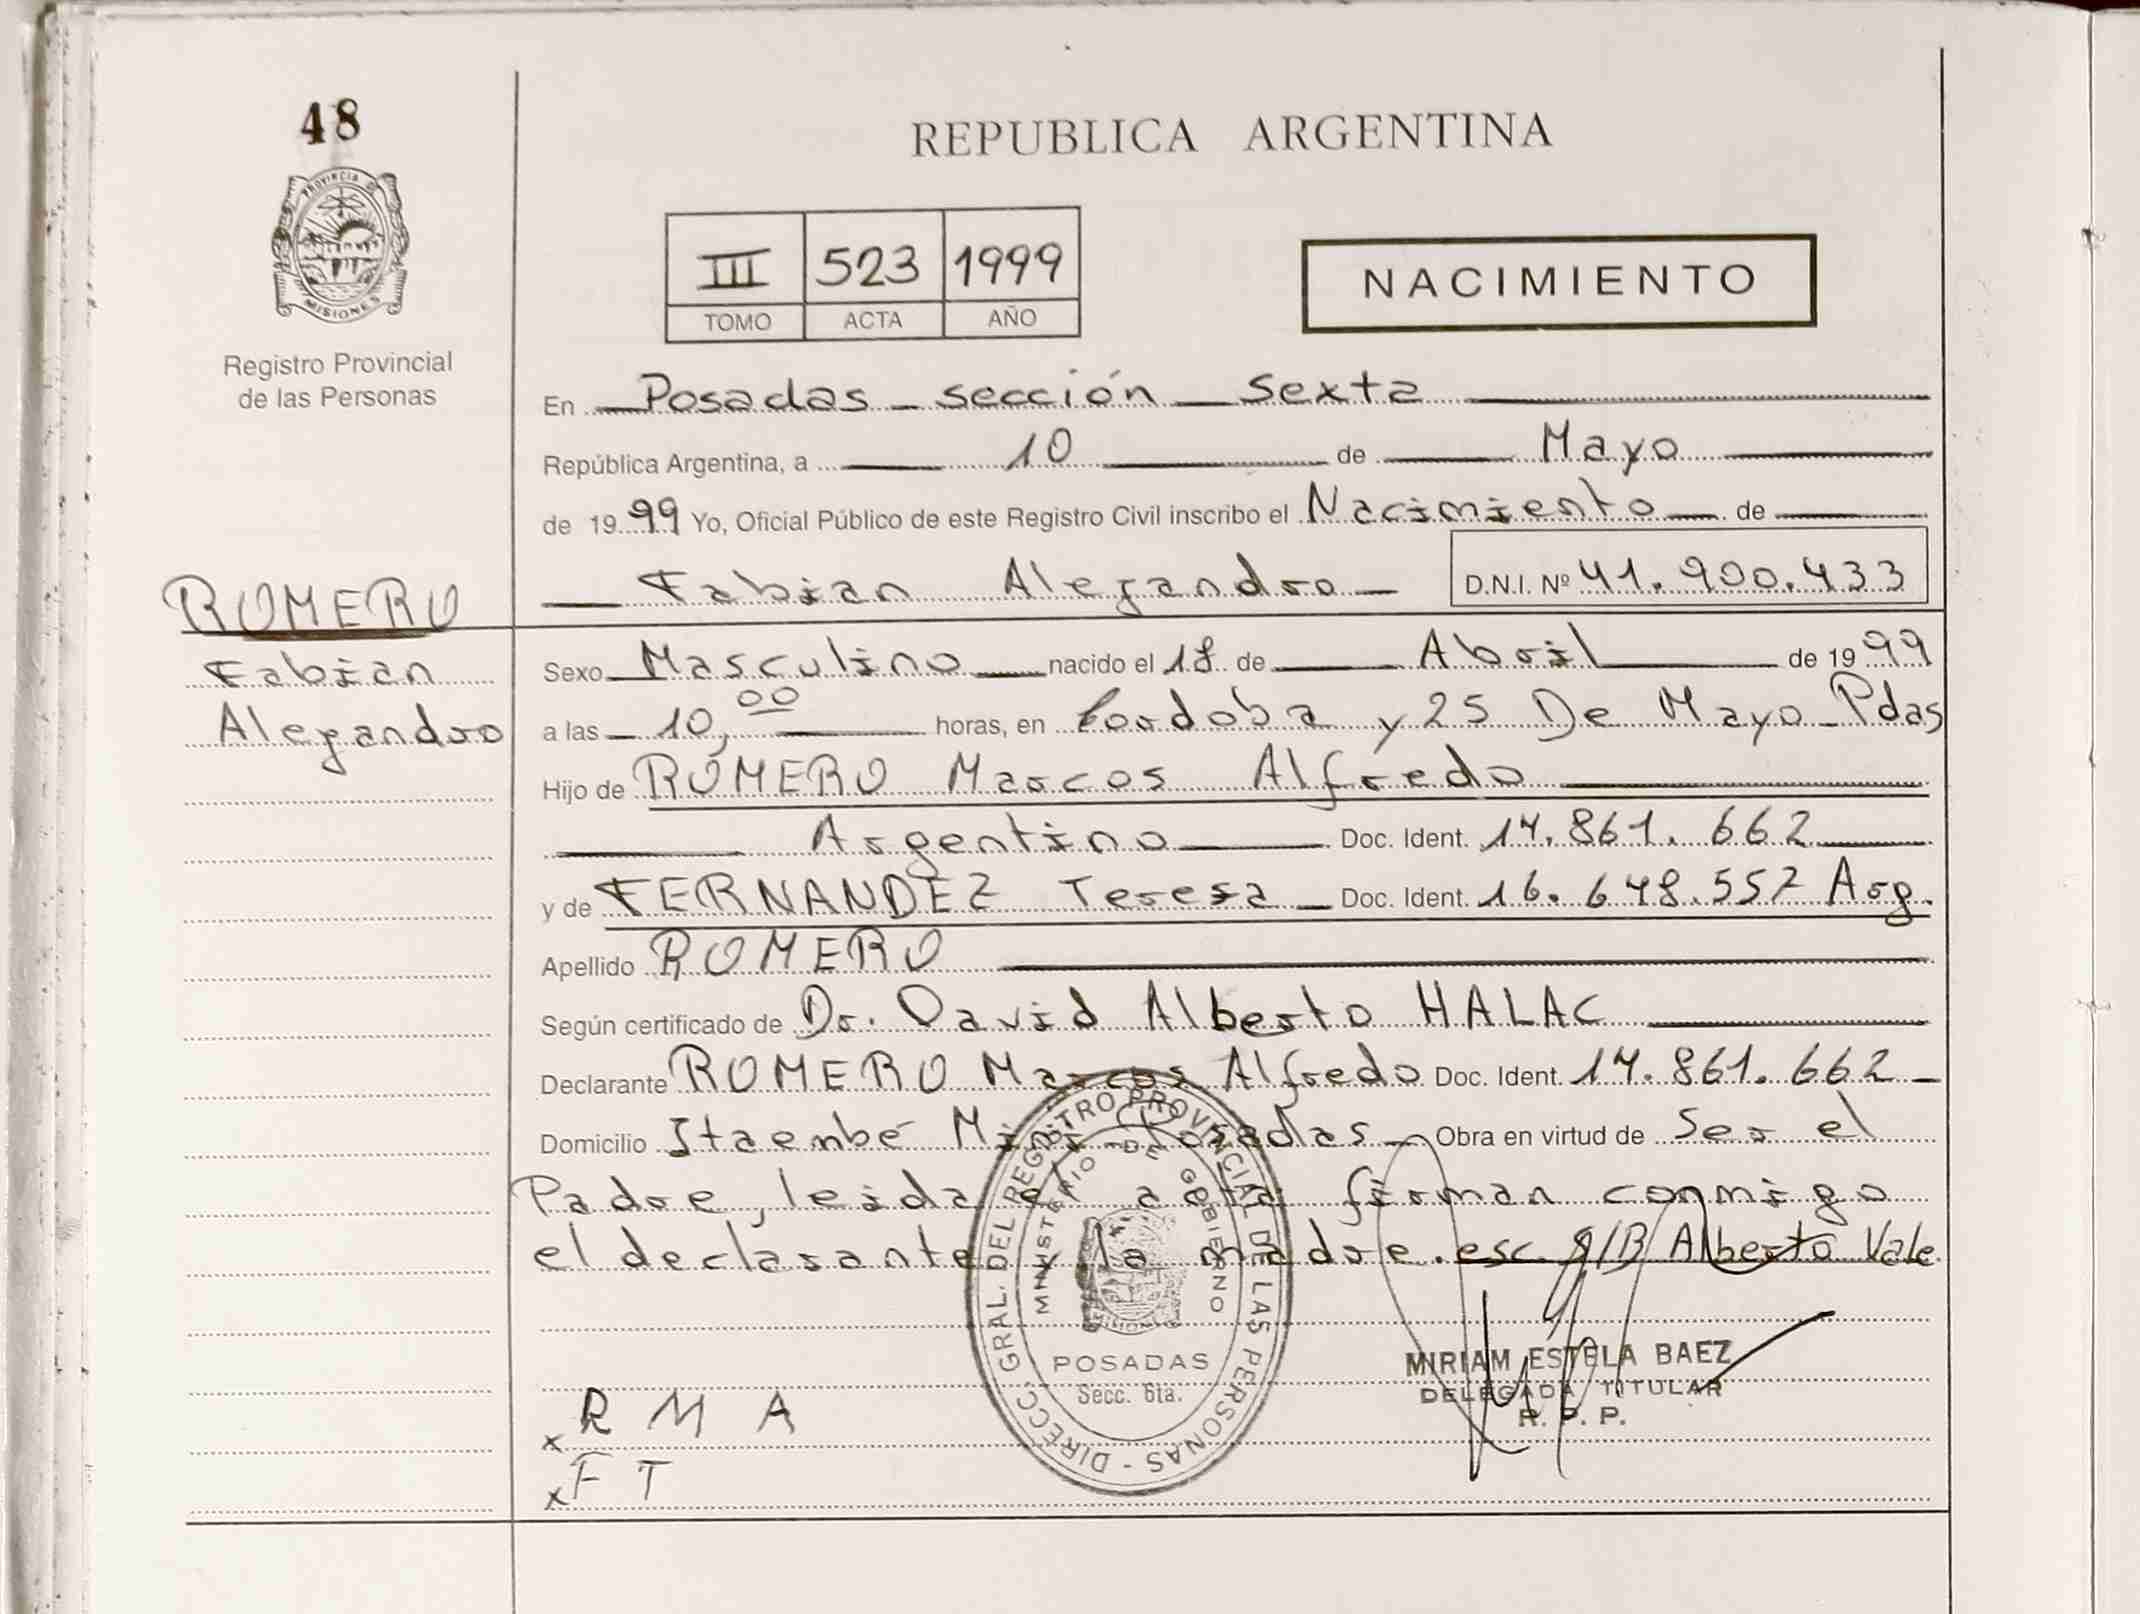 48
PROVINCIA DE
MISIONES
Registro Provincial
de las Personas
REPUBLICA ARGENTINA
III 523 1999
TOMO ACTA AÑO
NACIMIENTO
En Posadas sección Sexta
República Argentina, a 10 de Mayo
de 1999 Yo, Oficial Público de este Registro Civil inscribo el Nacimiento de
Fabian Alejandro D.N.I. Nº 41.900.433
ROMERO
Fabian
Alejandro
Sexo Masculino nacido el 18 de Abril de 1999
a las 10,00 horas, en Cordoba y 25 De Mayo Pdas
Hijo de ROMERO Marcos Alfredo
Argentino Doc. Ident. 14.861.662
y de FERNANDEZ Teresa Doc. Ident. 16.648.557 Arg.
Apellido ROMERO
Según certificado de Dr. David Alberto HALAC
Declarante ROMERO Marcos Alfredo Doc. Ident. 14.861.662
Domicilio Itaembé Mini Posadas Obra en virtud de Ser el
Padre, leida el acta firman conmigo
el declarante y la madre. esc. Alberto Vale
DIRECC. GRAL. DEL REGISTRO PROVINCIAL DE LAS PERSONAS -
MINISTERIO DE GOBIERNO
MISIONES
POSADAS
Secc. 6ta.
MIRIAM ESTELA BAEZ
DELEGADA TITULAR
R. P. P.
x R M A
x F T